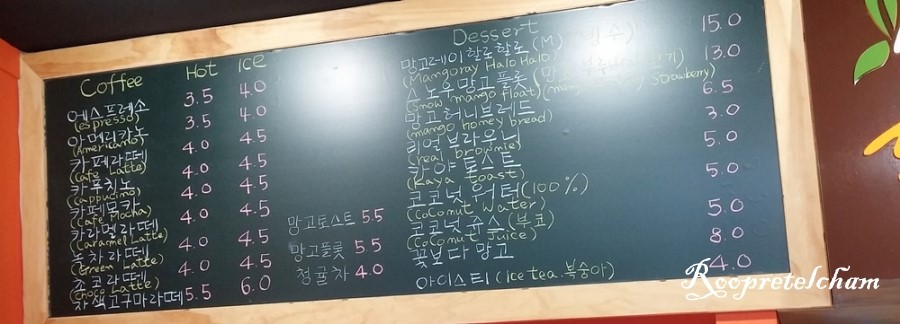 Coffee Hot ICE
에스프레소 3.5 4.0
(espresso)
아메리카노 3.5 4.0
(Americano)
카페라떼 4.0 4.5
(Cafe Latte)
카푸치노 4.0 4.5
(Cappucino)
카페모카 4.0 4.5
(Cafe Mocha)
카라멜라떼 4.0 4.5
(Caramel Latte)
녹차라떼 4.0 4.5
(Green Latte)
초코라떼 4.0 4.5
(Choco Latte)
자색고구마라떼 5.5 6.0
망고토스트 5.5
망고플룻 5.5
정글차 4.0
Dessert
망고레이할로할로 (M) 15.0
(Mangoray Halo Halo)
스노우망고플롯 13.0
(Snow mango float) Strawberry)
망고허니브레드 6.5
(mango honey bread)
리얼브라우니 3.0
(real brownie)
카야토스트 5.0
(Kaya toast)
코코넛 워터(100%) 5.0
(Coconut Water)
코코넛 쥬스(부코) 5.0
(Coconut Juice)
꽃보다 망고 8.0
아이스티 (ice tea.복숭아) 4.0
Roopretelcham